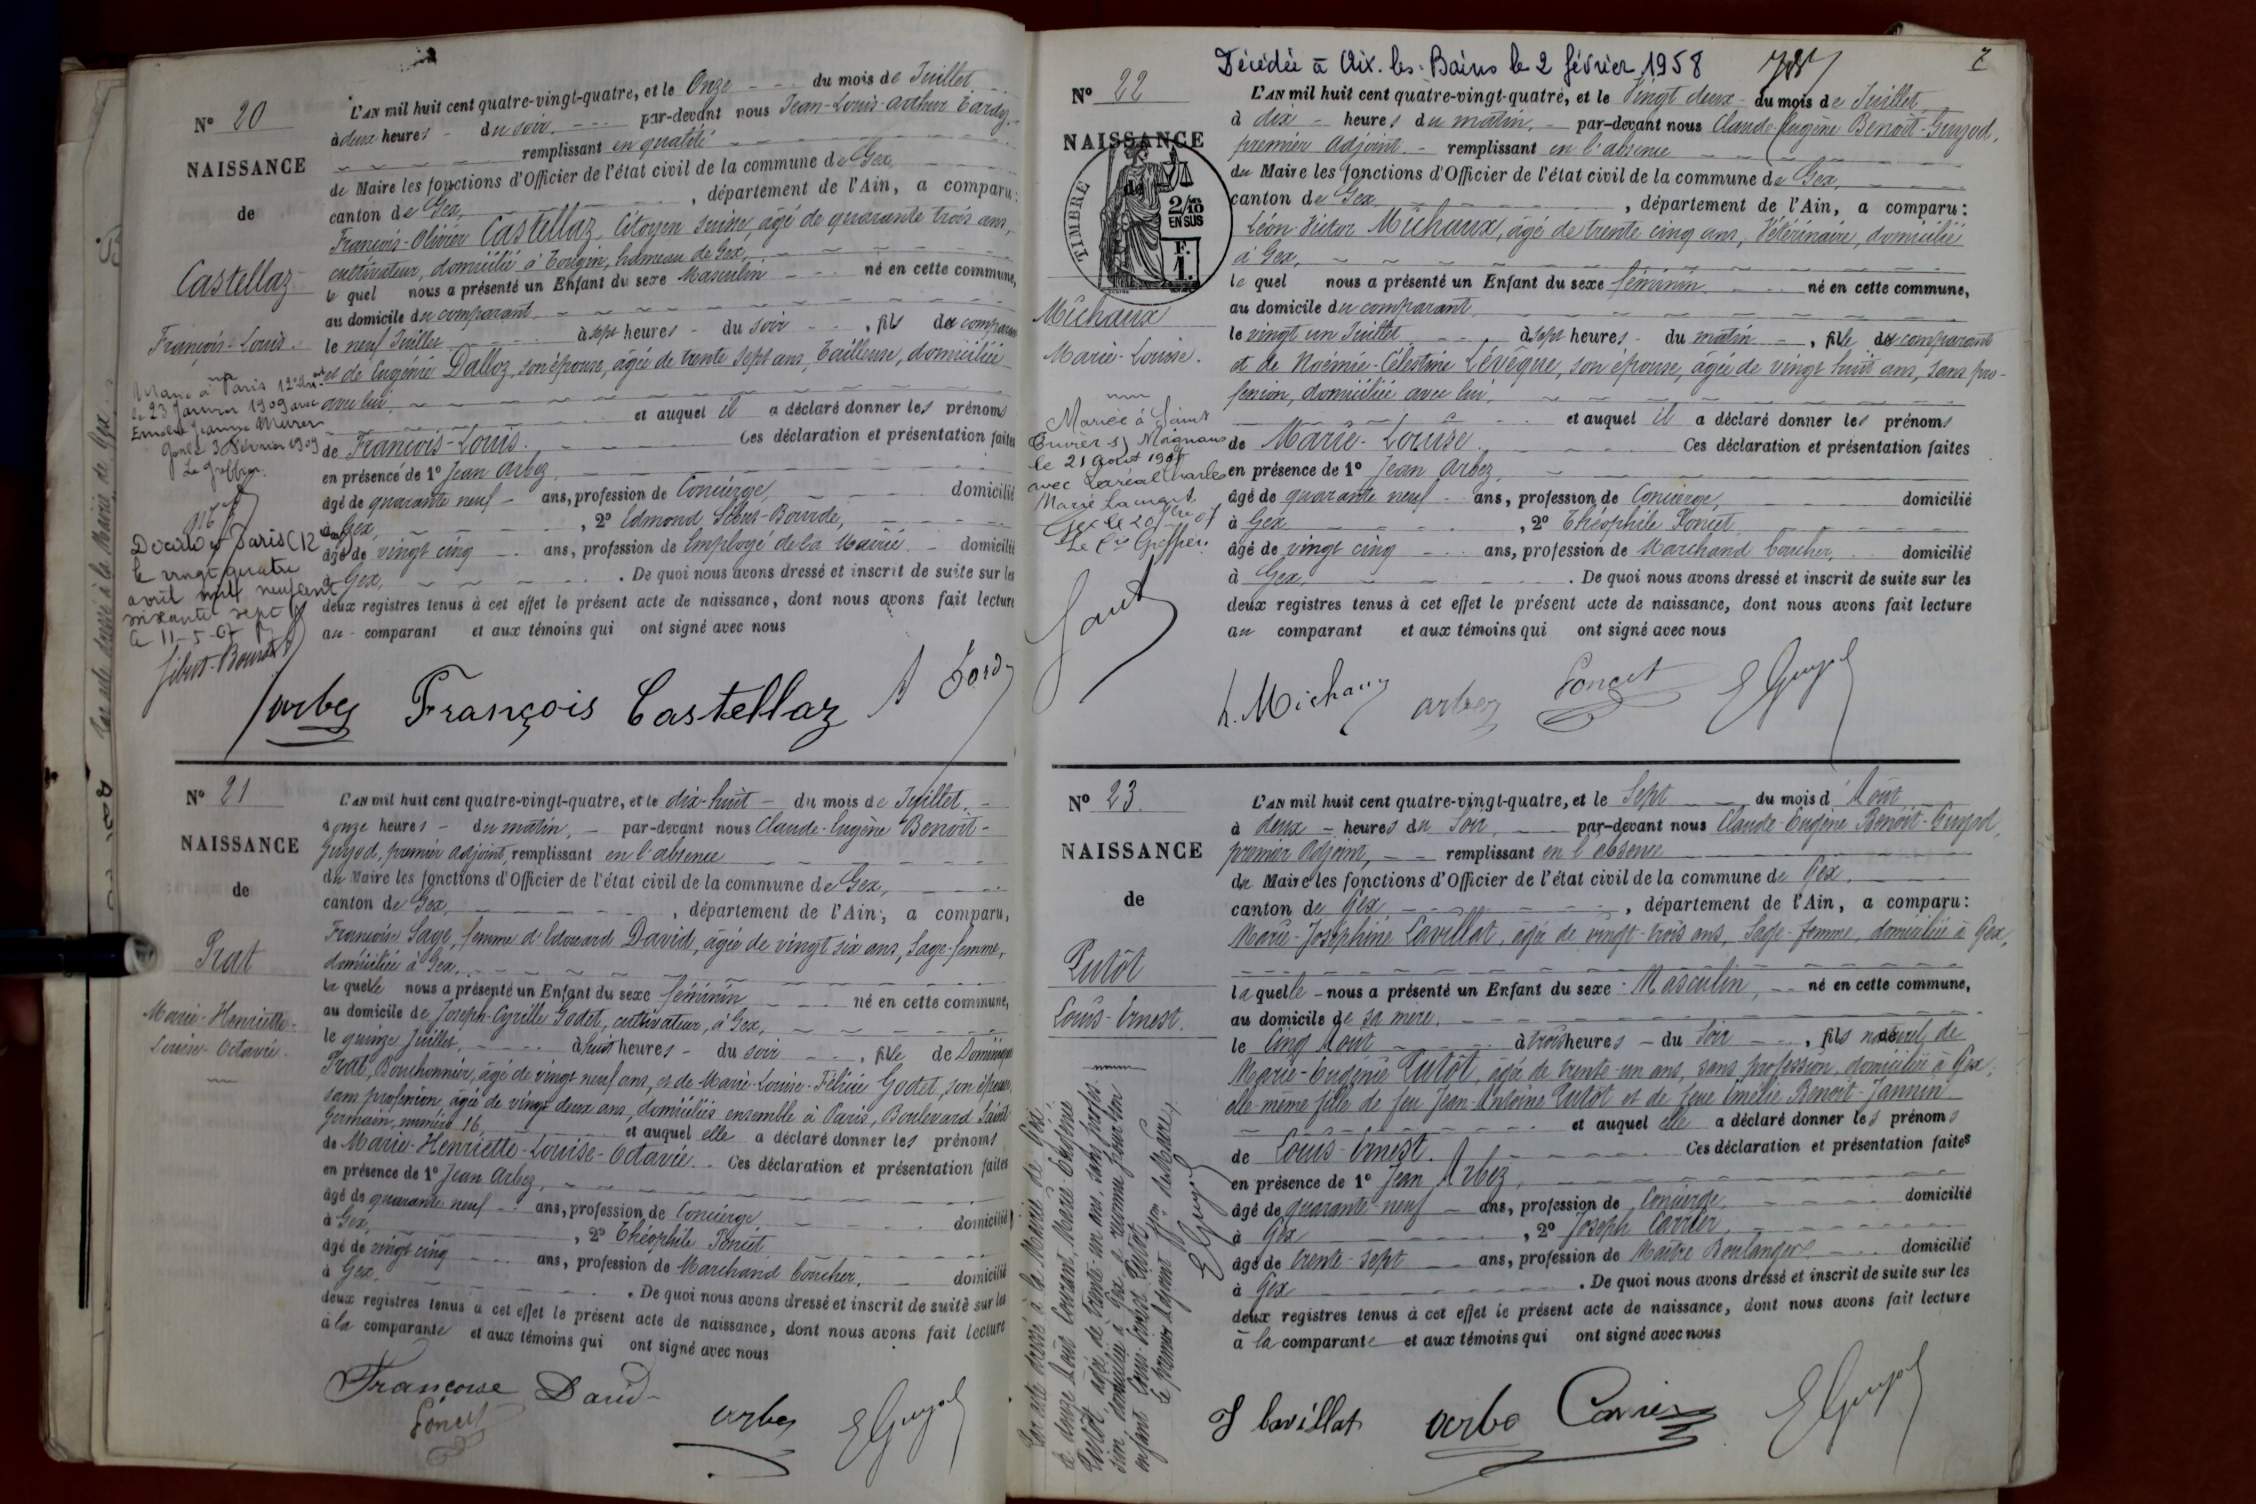 Nº 20
NAISSANCE
de
Castellaz
François-Louis.
Marié à Paris 12e
le 23 Janvier 1909 avec
Jeanne Meurer
3 Février 1909
Le Greffier
Paris (12
le vingt quatre
avril mil neuf cent
soixante sept
le 11-5-67
L'AN mil huit cent quatre-vingt-quatre, et le Onze du mois de Juillet
à deux heures du soir. par-devant nous Jean-Louis-Arthur Tardy
remplissant en qualité
de Maire les fonctions d'Officier de l'état civil de la commune de Gex,
canton de Gex, , département de l'Ain, a comparu:
François-Olivier Castellaz, Citoyen suisse, âgé de quarante trois ans,
cultivateur, domicilié à Tougin, hameau de Gex,
le quel nous a présenté un Enfant du sexe Masculin né en cette commune,
au domicile du comparant,
le neuf Juillet à sept heures du soir , fils du comparant
et de Eugénie Dalloz, son épouse, âgée de trente sept ans, Tailleuse, domiciliée
avec lui,
et auquel il a déclaré donner les prénoms
de François-Louis. Ces déclaration et présentation faites
en présence de 1º Jean Arbez,
âgé de quarante neuf ans, profession de Concierge, domicilié
à Gex, , 2º Edmond
âgé de vingt cinq ans, profession de Employé de la Mairie domicilié
à Gex, . De quoi nous avons dressé et inscrit de suite sur les
deux registres tenus à cet effet le présent acte de naissance, dont nous avons fait lecture
au comparant et aux témoins qui ont signé avec nous
arbez François Castellaz A Tardy
Nº 21
NAISSANCE
de
Prat
Marie-Henriette-
Louise-Octavie.
L'AN mil huit cent quatre-vingt-quatre, et le dix-huit du mois de Juillet.
à onze heures du matin, par-devant nous Claude-Eugène Benoit-
Guyod, premier adjoint, remplissant en l'absence
du Maire les fonctions d'Officier de l'état civil de la commune de Gex,
canton de Gex, , département de l'Ain, a comparu,
Françoise Sage, femme d'Edouard David, âgée de vingt six ans, Sage-femme,
domiciliée à Gex,
la quelle nous a présenté un Enfant du sexe féminin né en cette commune,
au domicile de Joseph-Cyrille Godet, cultivateur, à Gex,
le quinze Juillet, à huit heures du soir , fille de Dominique
Prat, Bouchonnier, âgé de vingt neuf ans, et de Marie-Louise-Félicie Godet, son épouse,
sans profession, âgée de vingt deux ans, domiciliés ensemble à Paris, Boulevard Saint
Germain, numéro 16 et auquel elle a déclaré donner les prénoms
de Marie-Henriette-Louise-Octavie. Ces déclaration et présentation faites
en présence de 1º Jean Arbez,
âgé de quarante neuf ans, profession de Concierge, domicilié
à Gex, , 2º Théophile Poncet
âgé de vingt cinq ans, profession de Marchand boucher, domicilié
à Gex, . De quoi nous avons dressé et inscrit de suite sur les
deux registres tenus à cet effet le présent acte de naissance, dont nous avons fait lecture
à la comparante et aux témoins qui ont signé avec nous
Françoise David
Poncet arbez E Guyod
7
Décédée à Aix-les-Bains le 2 février 1958
Nº 22
NAISSANCE
de
TIMBRE
2/10
EN SUS
F.
1.
Michaux
Marie-Louise.
Mariée à Saint
le 21 Août 1907
avec Charles
Marie Laurent
L'AN mil huit cent quatre-vingt-quatre, et le Vingt deux du mois de Juillet
à dix heures du matin, par-devant nous Claude-Eugène Benoit-Guyod,
premier Adjoint remplissant en l'absence
du Maire les fonctions d'Officier de l'état civil de la commune de Gex,
canton de Gex , département de l'Ain, a comparu:
Léon-Victor Michaux, âgé de trente cinq ans, Vétérinaire, domicilié
à Gex,
le quel nous a présenté un Enfant du sexe féminin né en cette commune,
au domicile du comparant
le vingt un Juillet à sept heures du matin , fille du comparant
et de Noémie-Célestine Lévêque, son épouse, âgée de vingt huit ans, sans pro-
fession, domiciliée avec lui,
et auquel il a déclaré donner les prénoms
de Marie-Louise Ces déclaration et présentation faites
en présence de 1º Jean Arbez,
âgé de quarante neuf ans, profession de Concierge, domicilié
à Gex , 2º Théophile Poncet
âgé de vingt cinq ans, profession de Marchand boucher, domicilié
à Gex, . De quoi nous avons dressé et inscrit de suite sur les
deux registres tenus à cet effet le présent acte de naissance, dont nous avons fait lecture
au comparant et aux témoins qui ont signé avec nous
L. Michaux arbez Poncet E Guyod
Nº 23.
NAISSANCE
de
Putôt
Louis-Ernest.
Par acte dressé à la Mairie de Gex,
le douze Août courant, Marie-Eugénie
Putôt, âgée de trente-un ans, sans profes-
sion, domiciliée à Gex, a reconnu pour son
enfant Louis-Ernest Putôt.
Le premier Adjoint ffon du Maire,
E Guyod
L'AN mil huit cent quatre-vingt-quatre, et le Sept du mois d'Août
à deux heures du Soir, par-devant nous Claude-Eugène Benoit-Guyod,
premier Adjoint, remplissant en l'absence
du Maire les fonctions d'Officier de l'état civil de la commune de Gex.
canton de Gex , département de l'Ain, a comparu:
Marie-Joséphine Lavillat, âgée de vingt-trois ans, Sage-femme, domiciliée à Gex,
la quelle nous a présenté un Enfant du sexe Masculin, né en cette commune,
au domicile de sa mère,
le Cinq Août à trois heures du Soir , fils naturel de
Marie-Eugénie Putôt, âgée de trente-un ans, sans profession, domiciliée à Gex,
elle-même fille de feu Jean-Antoine Putôt et de feue Emilie Benoit-Jannin
et auquel elle a déclaré donner les prénoms
de Louis-Ernest. Ces déclaration et présentation faites
en présence de 1º Jean Arbez,
âgé de quarante-neuf ans, profession de Concierge, domicilié
à Gex , 2º Joseph Carrier,
âgé de trente-sept ans, profession de Maître Boulanger domicilié
à Gex . De quoi nous avons dressé et inscrit de suite sur les
deux registres tenus à cet effet le présent acte de naissance, dont nous avons fait lecture
à la comparante et aux témoins qui ont signé avec nous
J Lavillat arbez Carrier E Guyod